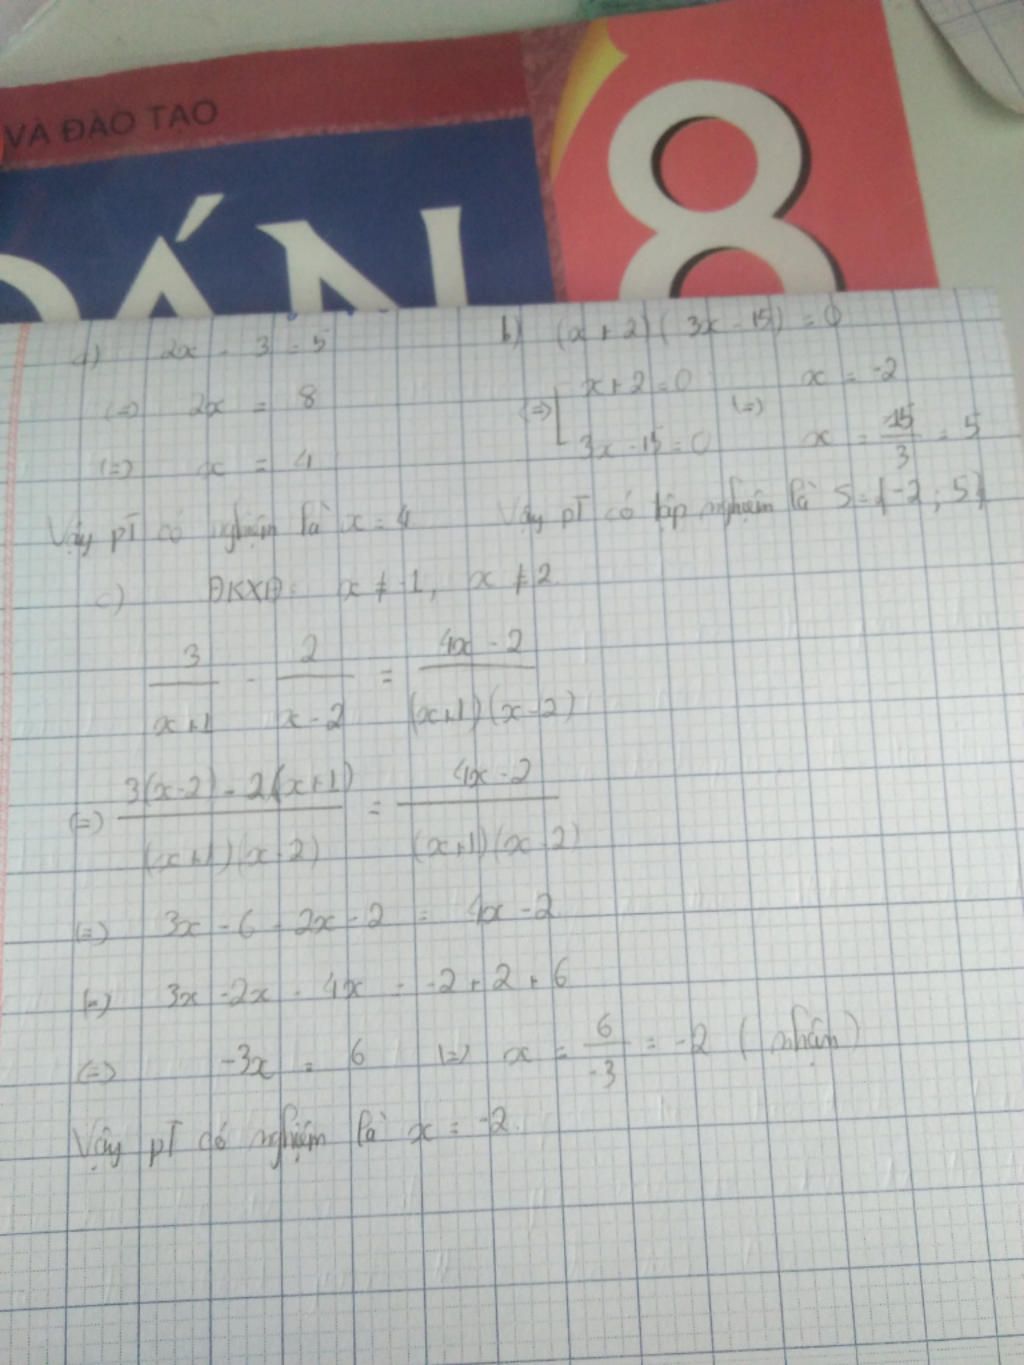 VÀ ĐÀO TẠO
OÁN 8
a) 2x - 3 = 5
(=) 2x = 8
(=) x = 4
Vậy pT có nghiệm là x = 4
b) (x + 2)(3x - 15) = 0
(=) [ x + 2 = 0 (=) x = -2
3x - 15 = 0 x = 15/3 = 5
Vậy pT có tập nghiệm là S = {-2 ; 5}
c) ĐKXĐ: x ≠ -1, x ≠ 2
3/(x+1) - 2/(x-2) = (4x - 2)/((x+1)(x-2))
(=) (3(x-2) - 2(x+1))/((x+1)(x-2)) = (4x - 2)/((x+1)(x-2))
(=) 3x - 6 - 2x - 2 = 4x - 2
(=) 3x - 2x - 4x = -2 + 2 + 6
(=) -3x = 6 (=) x = 6/-3 = -2 (nhận)
Vậy pT có nghiệm là x = -2.